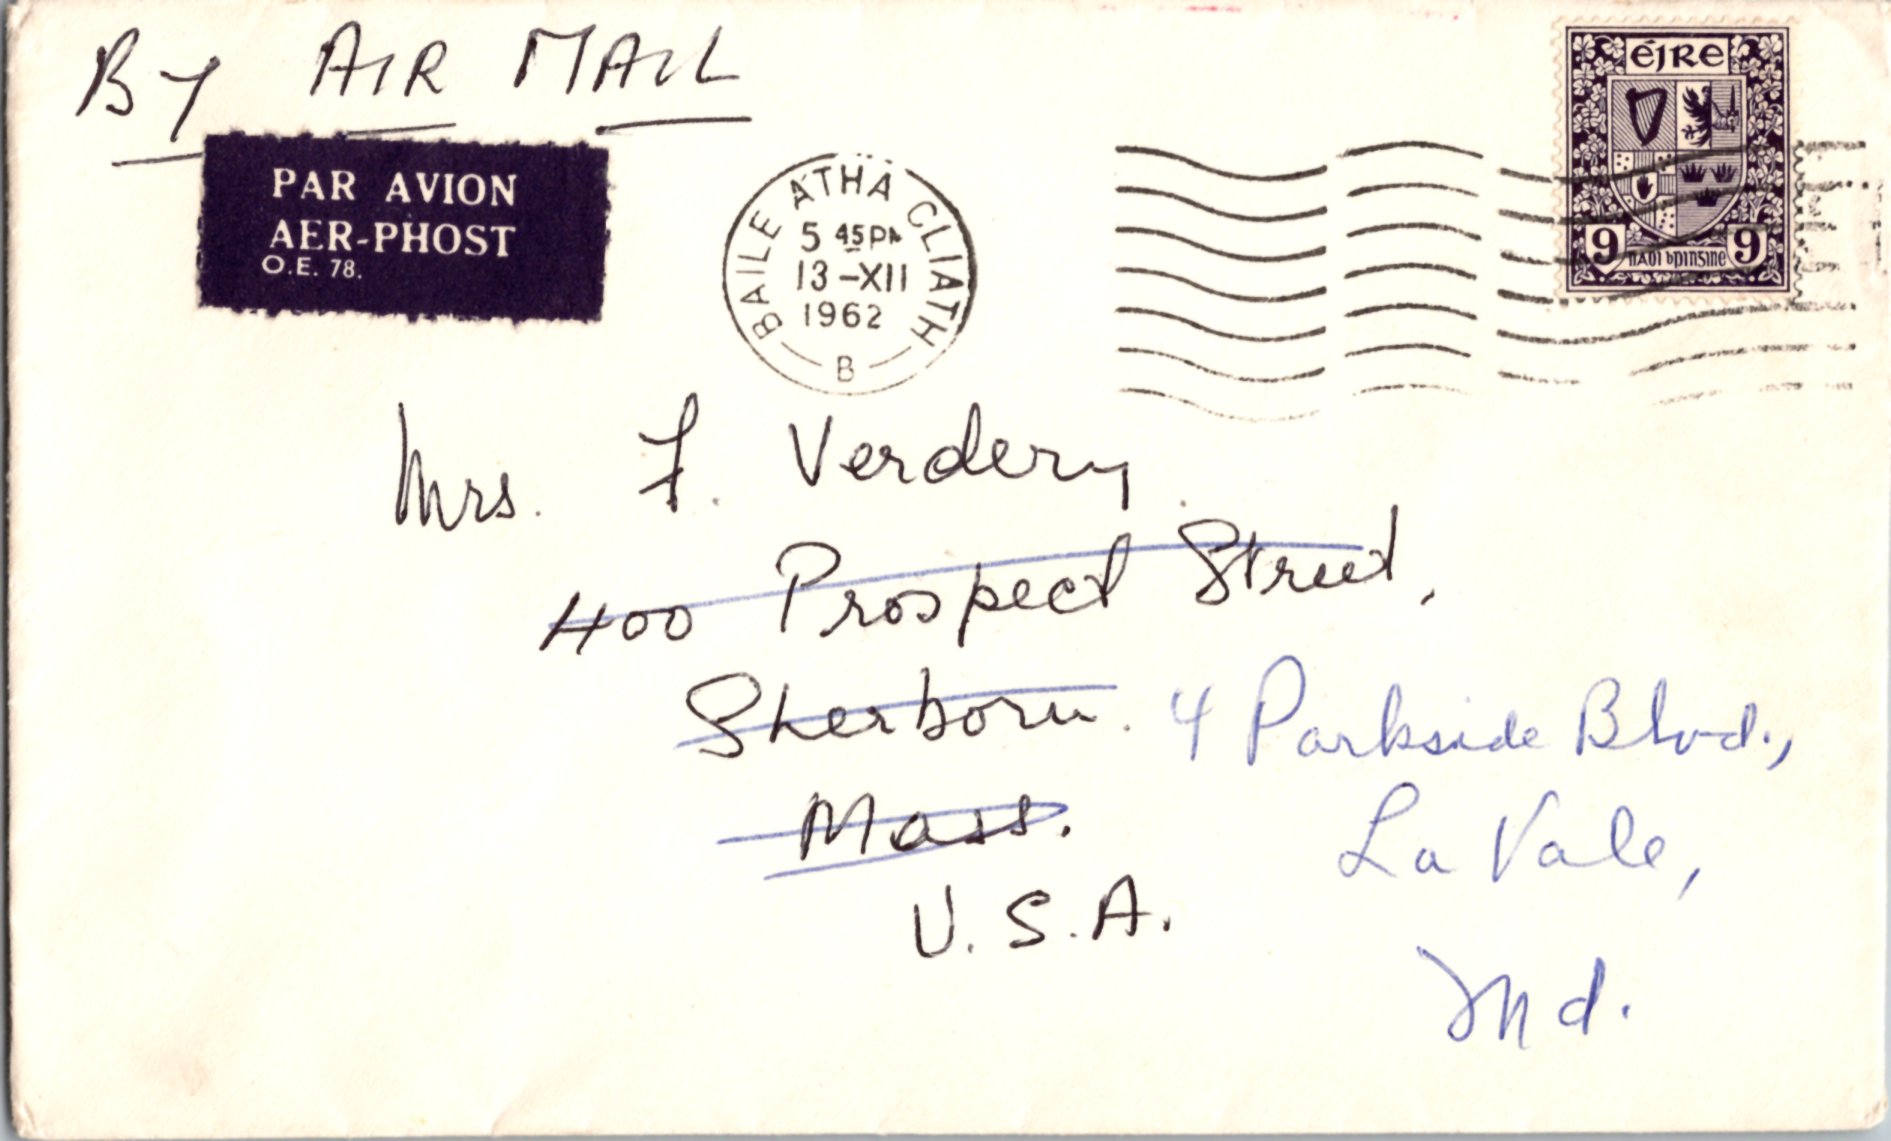 By AIR MAIL
PAR AVION
AER-PHOST
O.E. 78.
BAILE ÁTHA CLIATH
5 45PM
13-XII
1962
B
éire
9 naoi bpinsine 9
Mrs. F. Verdery
400 Prospect Street,
Sherborn.
Mass.
U.S.A.
4 Parkside Blvd.,
La Vale,
Md.